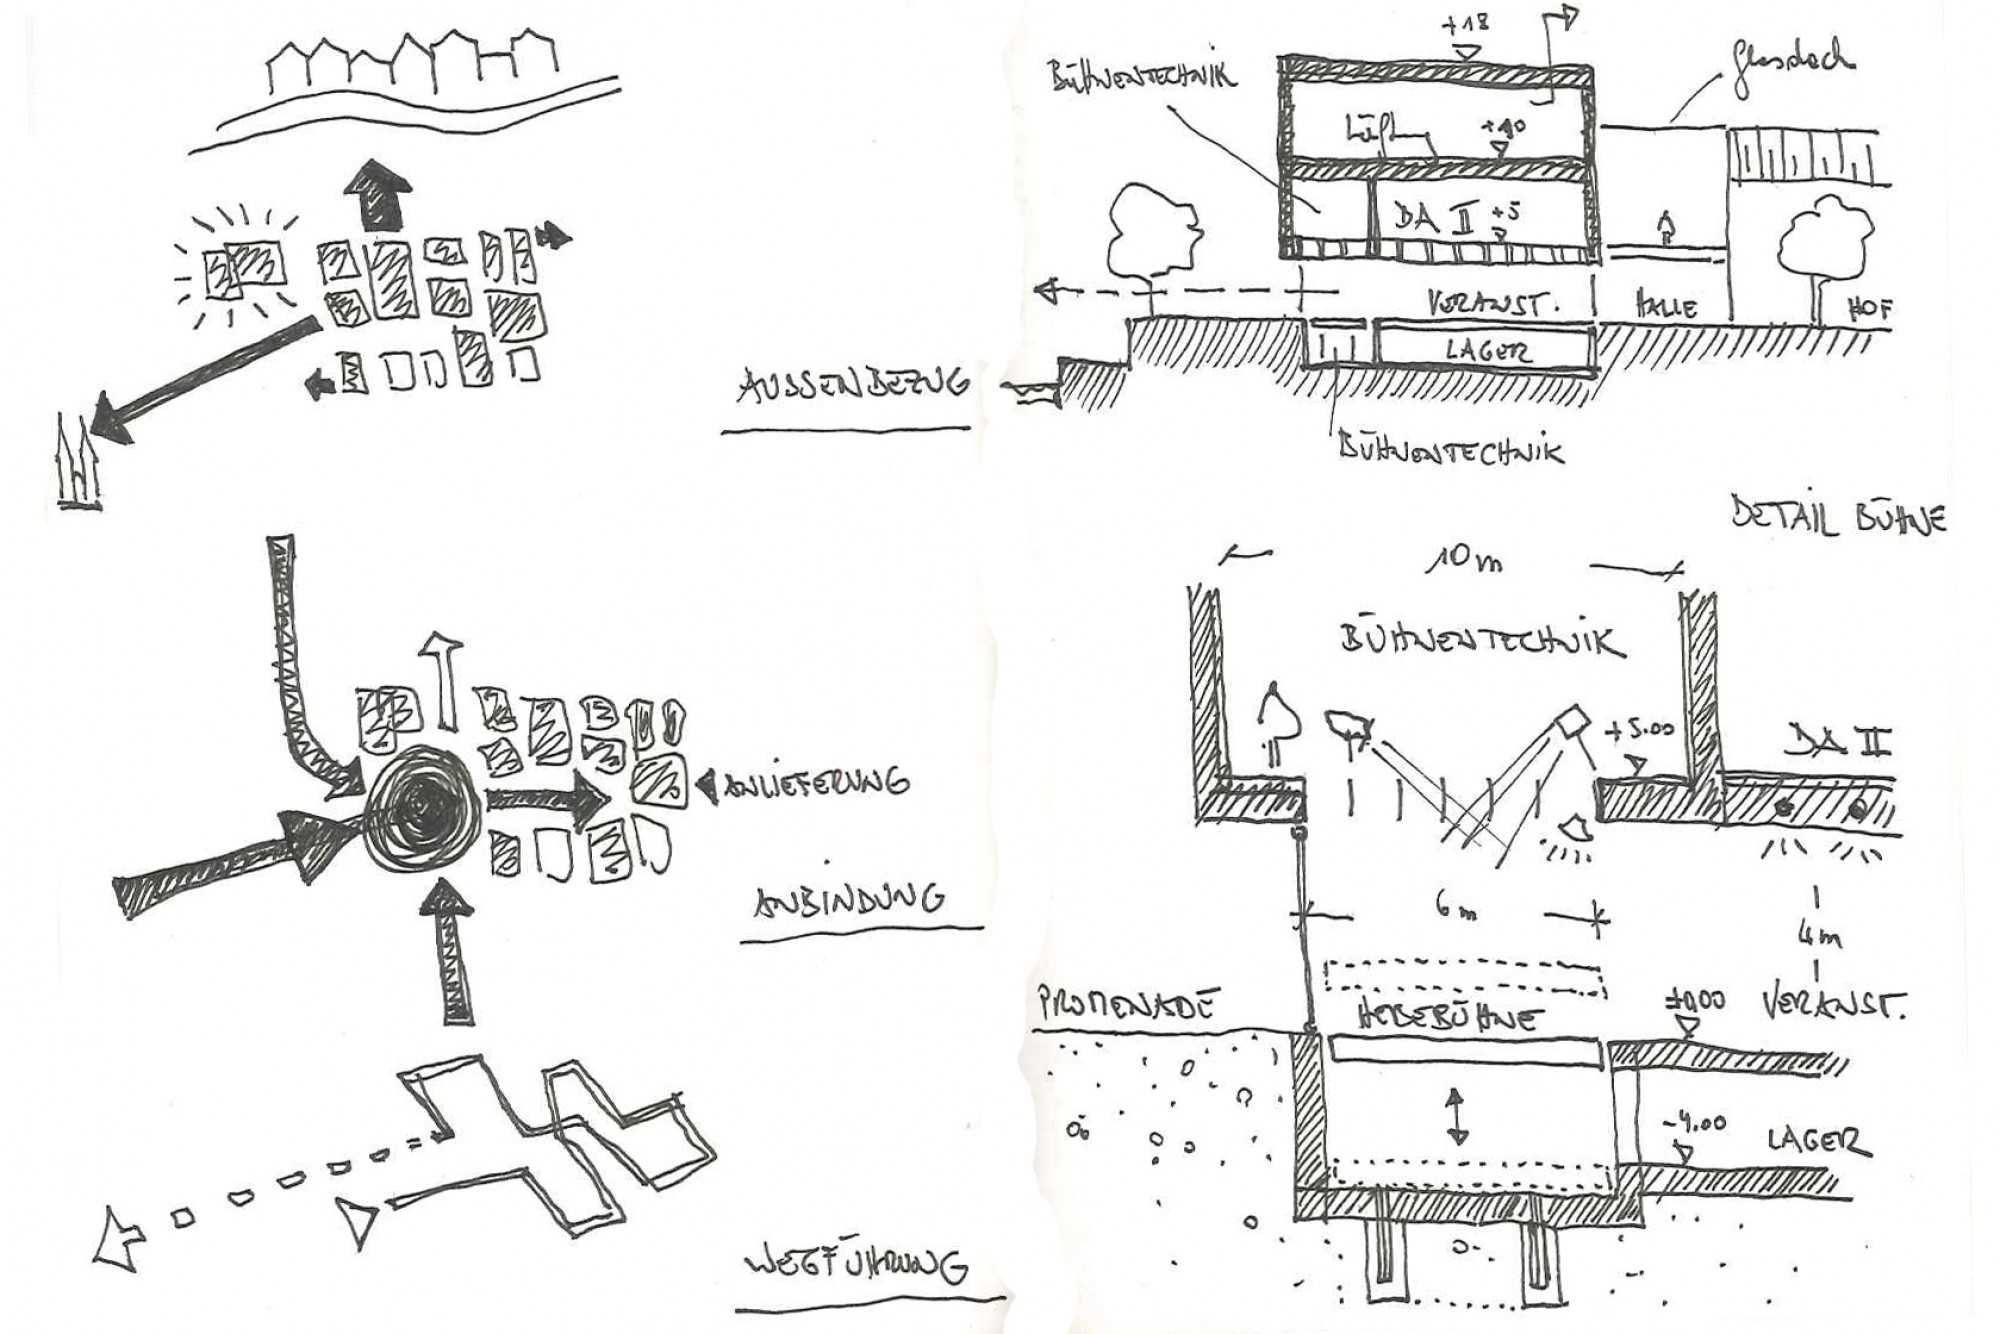 AUSSENBEZUG
ANLIEFERUNG
ANBINDUNG
WEGFÜHRUNG
+18
BÜHNENTECHNIK
Glasdach
Lüft
+10
DA II +5
VERANST.
HALLE
HOF
LAGER
BÜHNENTECHNIK
DETAIL BÜHNE
10m
BÜHNENTECHNIK
+5.00
DA II
6m
4m
PROMENADE
HEBEBÜHNE
±0,00
VERANST.
-4.00
LAGER